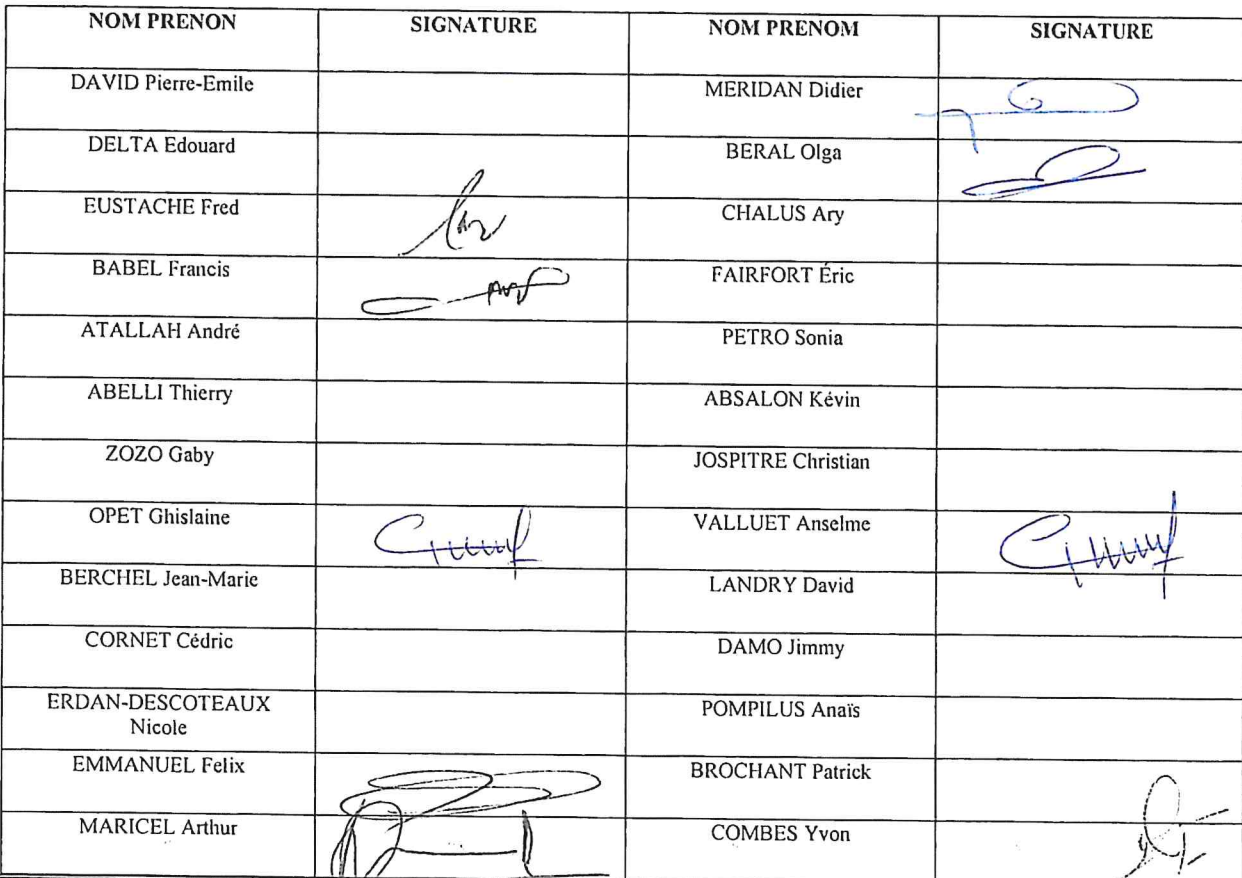 NOM PRENON SIGNATURE NOM PRENOM SIGNATURE
DAVID Pierre-Emile MERIDAN Didier
DELTA Edouard BERAL Olga
EUSTACHE Fred CHALUS Ary
BABEL Francis FAIRFORT Éric
ATALLAH André PETRO Sonia
ABELLI Thierry ABSALON Kévin
ZOZO Gaby JOSPITRE Christian
OPET Ghislaine VALLUET Anselme
BERCHEL Jean-Marie LANDRY David
CORNET Cédric DAMO Jimmy
ERDAN-DESCOTEAUX POMPILUS Anaïs
Nicole
EMMANUEL Felix BROCHANT Patrick
MARICEL Arthur COMBES Yvon